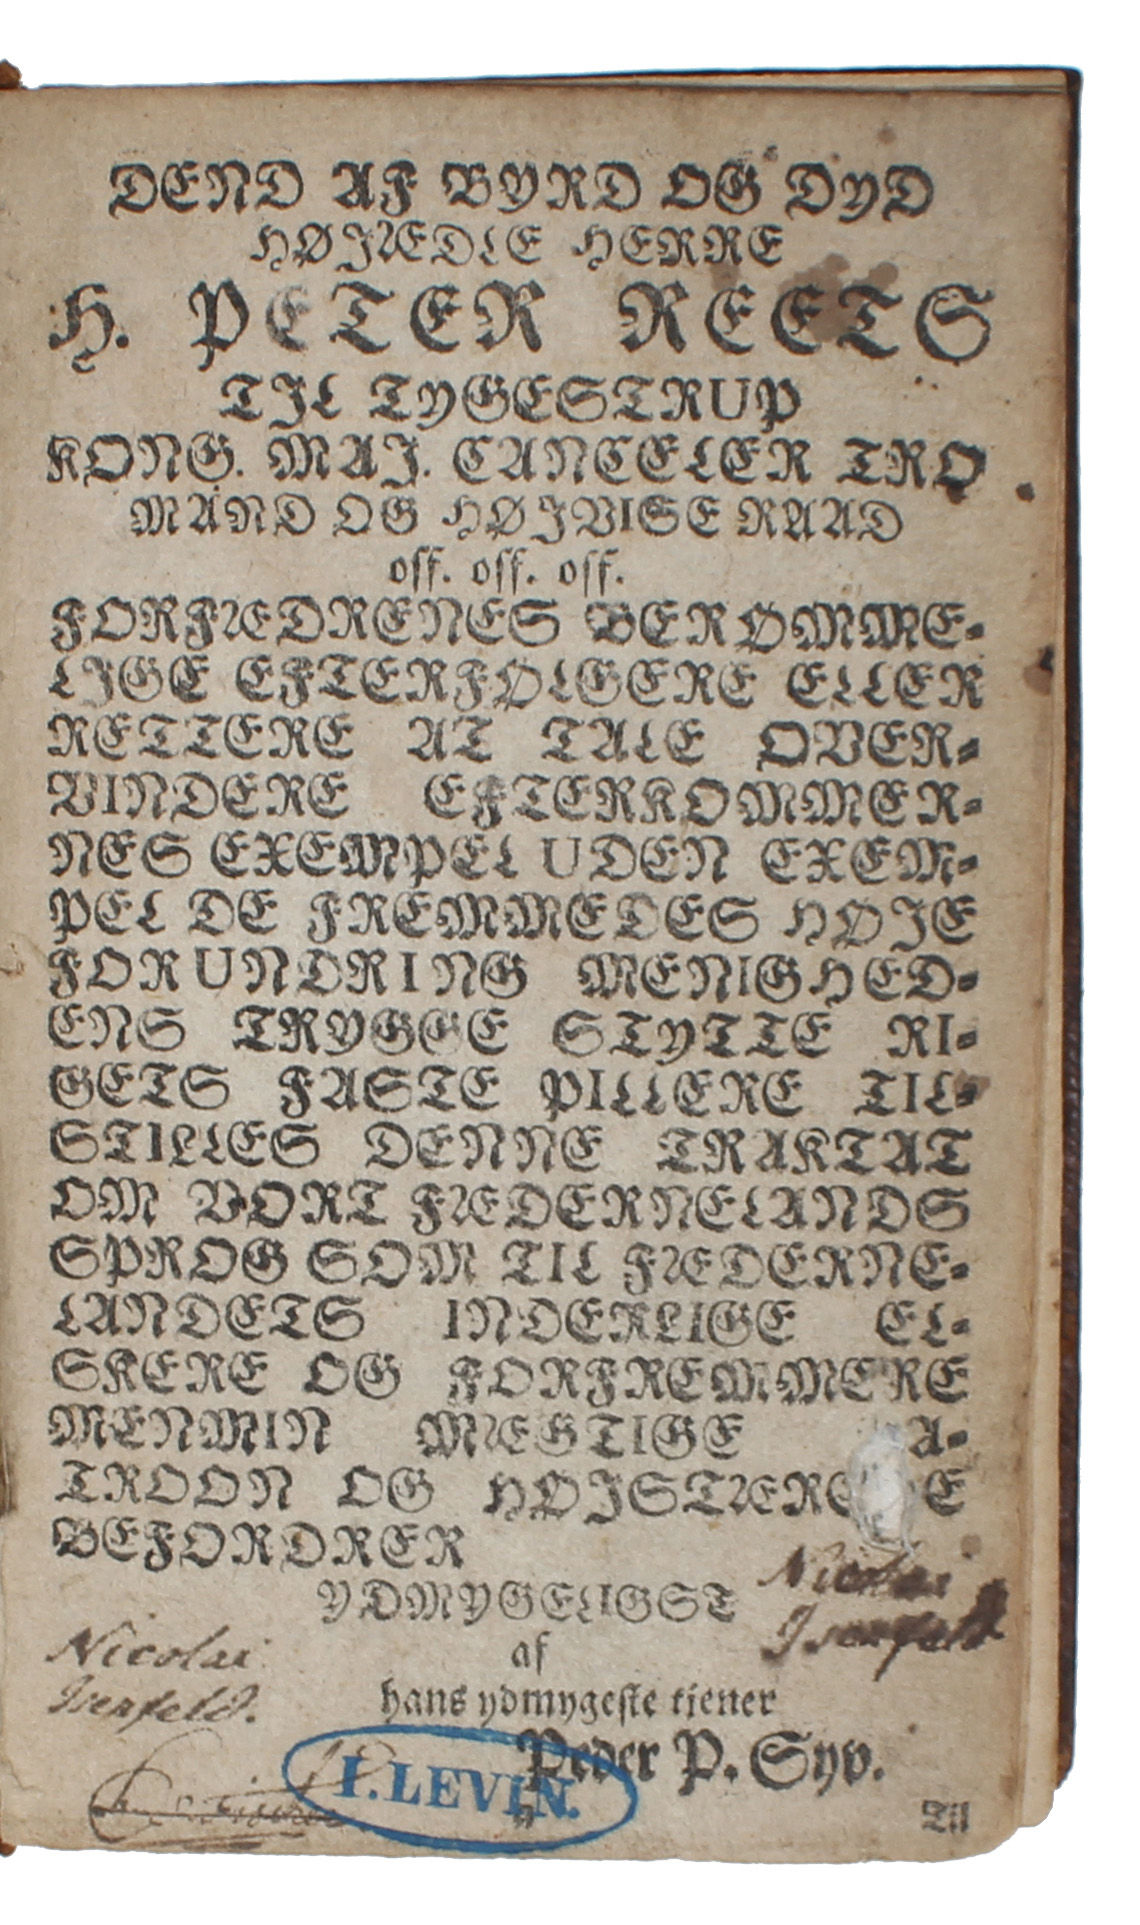 DEND AF BYRD OG DYD
HØJÆDLE HERRE
H. PETER REETS
TJL TYGESTRUP
KONG. MAJ. CANCELER TRO
MAND OG HØJVISE RAAD
osf. osf. osf.
FORFÆDRENES BERØMME-
LJGE EFTERFØLGERE ELLER
RETTERE AT TALE OVER-
VINDERE EFTERKOMMER-
NES EXEMPEL UDEN EXEM-
PEL DE FREMMEDES HØJE
FORUNDRING MENIGHED-
ENS TRYGGE STYTTE RI-
GETS FASTE PILLERE TIL-
STILLES DENNE TRAKTAT
OM VORT FÆDERNELANDS
SPROG SOM TIL FÆDERNE-
LANDETS INDERLIGE EL-
SKERE OG FORFREMMERE
MENMIN MÆGTIGE A-
TROON OG
BEFORDRER
YDMYGELIGST
Nicolai
Isenfeldt
af
Nicolai
Isenfeldt.
hans ydmygeste tiener
Peder P. Syv.
I. LEVIN.
Til